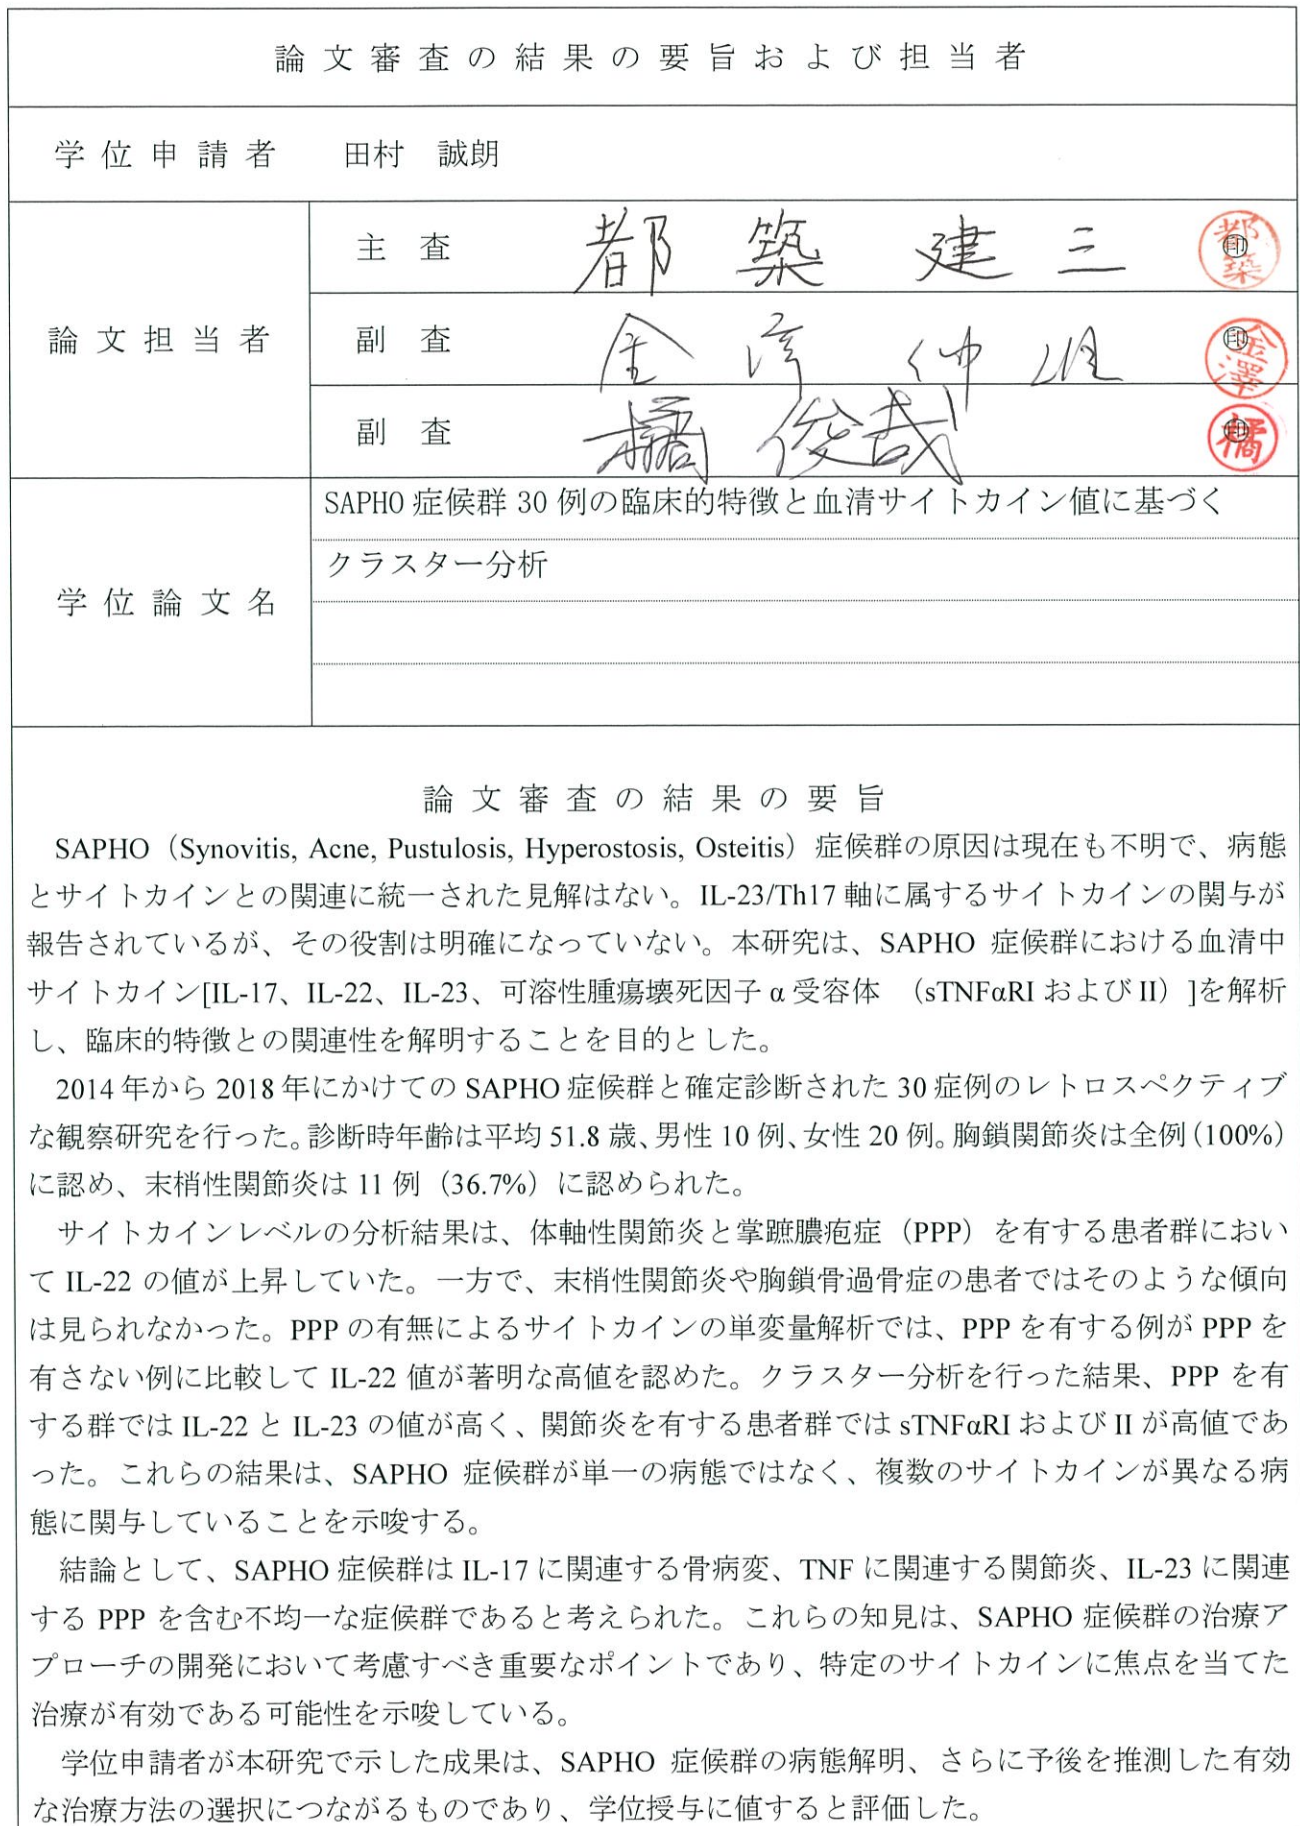 論文審査の結果の要旨および担当者
学位申請者 田村 誠朗
論文担当者
主 査 都築 建三 ㊞ 都築
副 査 金澤 伸雄 ㊞ 金澤
副 査 橘 俊哉 ㊞ 橘
学位論文名
SAPHO 症候群 30 例の臨床的特徴と血清サイトカイン値に基づく
クラスター分析
論文審査の結果の要旨
SAPHO(Synovitis, Acne, Pustulosis, Hyperostosis, Osteitis)症候群の原因は現在も不明で、病態
とサイトカインとの関連に統一された見解はない。IL-23/Th17 軸に属するサイトカインの関与が
報告されているが、その役割は明確になっていない。本研究は、SAPHO 症候群における血清中
サイトカイン[IL-17、IL-22、IL-23、可溶性腫瘍壊死因子 α 受容体 (sTNFαRI および II)]を解析
し、臨床的特徴との関連性を解明することを目的とした。
2014 年から 2018 年にかけての SAPHO 症候群と確定診断された 30 症例のレトロスペクティブ
な観察研究を行った。診断時年齢は平均 51.8 歳、男性 10 例、女性 20 例。胸鎖関節炎は全例(100%)
に認め、末梢性関節炎は 11 例(36.7%)に認められた。
サイトカインレベルの分析結果は、体軸性関節炎と掌蹠膿疱症(PPP)を有する患者群におい
て IL-22 の値が上昇していた。一方で、末梢性関節炎や胸鎖骨過骨症の患者ではそのような傾向
は見られなかった。PPP の有無によるサイトカインの単変量解析では、PPP を有する例が PPP を
有さない例に比較して IL-22 値が著明な高値を認めた。クラスター分析を行った結果、PPP を有
する群では IL-22 と IL-23 の値が高く、関節炎を有する患者群では sTNFαRI および II が高値であ
った。これらの結果は、SAPHO 症候群が単一の病態ではなく、複数のサイトカインが異なる病
態に関与していることを示唆する。
結論として、SAPHO 症候群は IL-17 に関連する骨病変、TNF に関連する関節炎、IL-23 に関連
する PPP を含む不均一な症候群であると考えられた。これらの知見は、SAPHO 症候群の治療ア
プローチの開発において考慮すべき重要なポイントであり、特定のサイトカインに焦点を当てた
治療が有効である可能性を示唆している。
学位申請者が本研究で示した成果は、SAPHO 症候群の病態解明、さらに予後を推測した有効
な治療方法の選択につながるものであり、学位授与に値すると評価した。